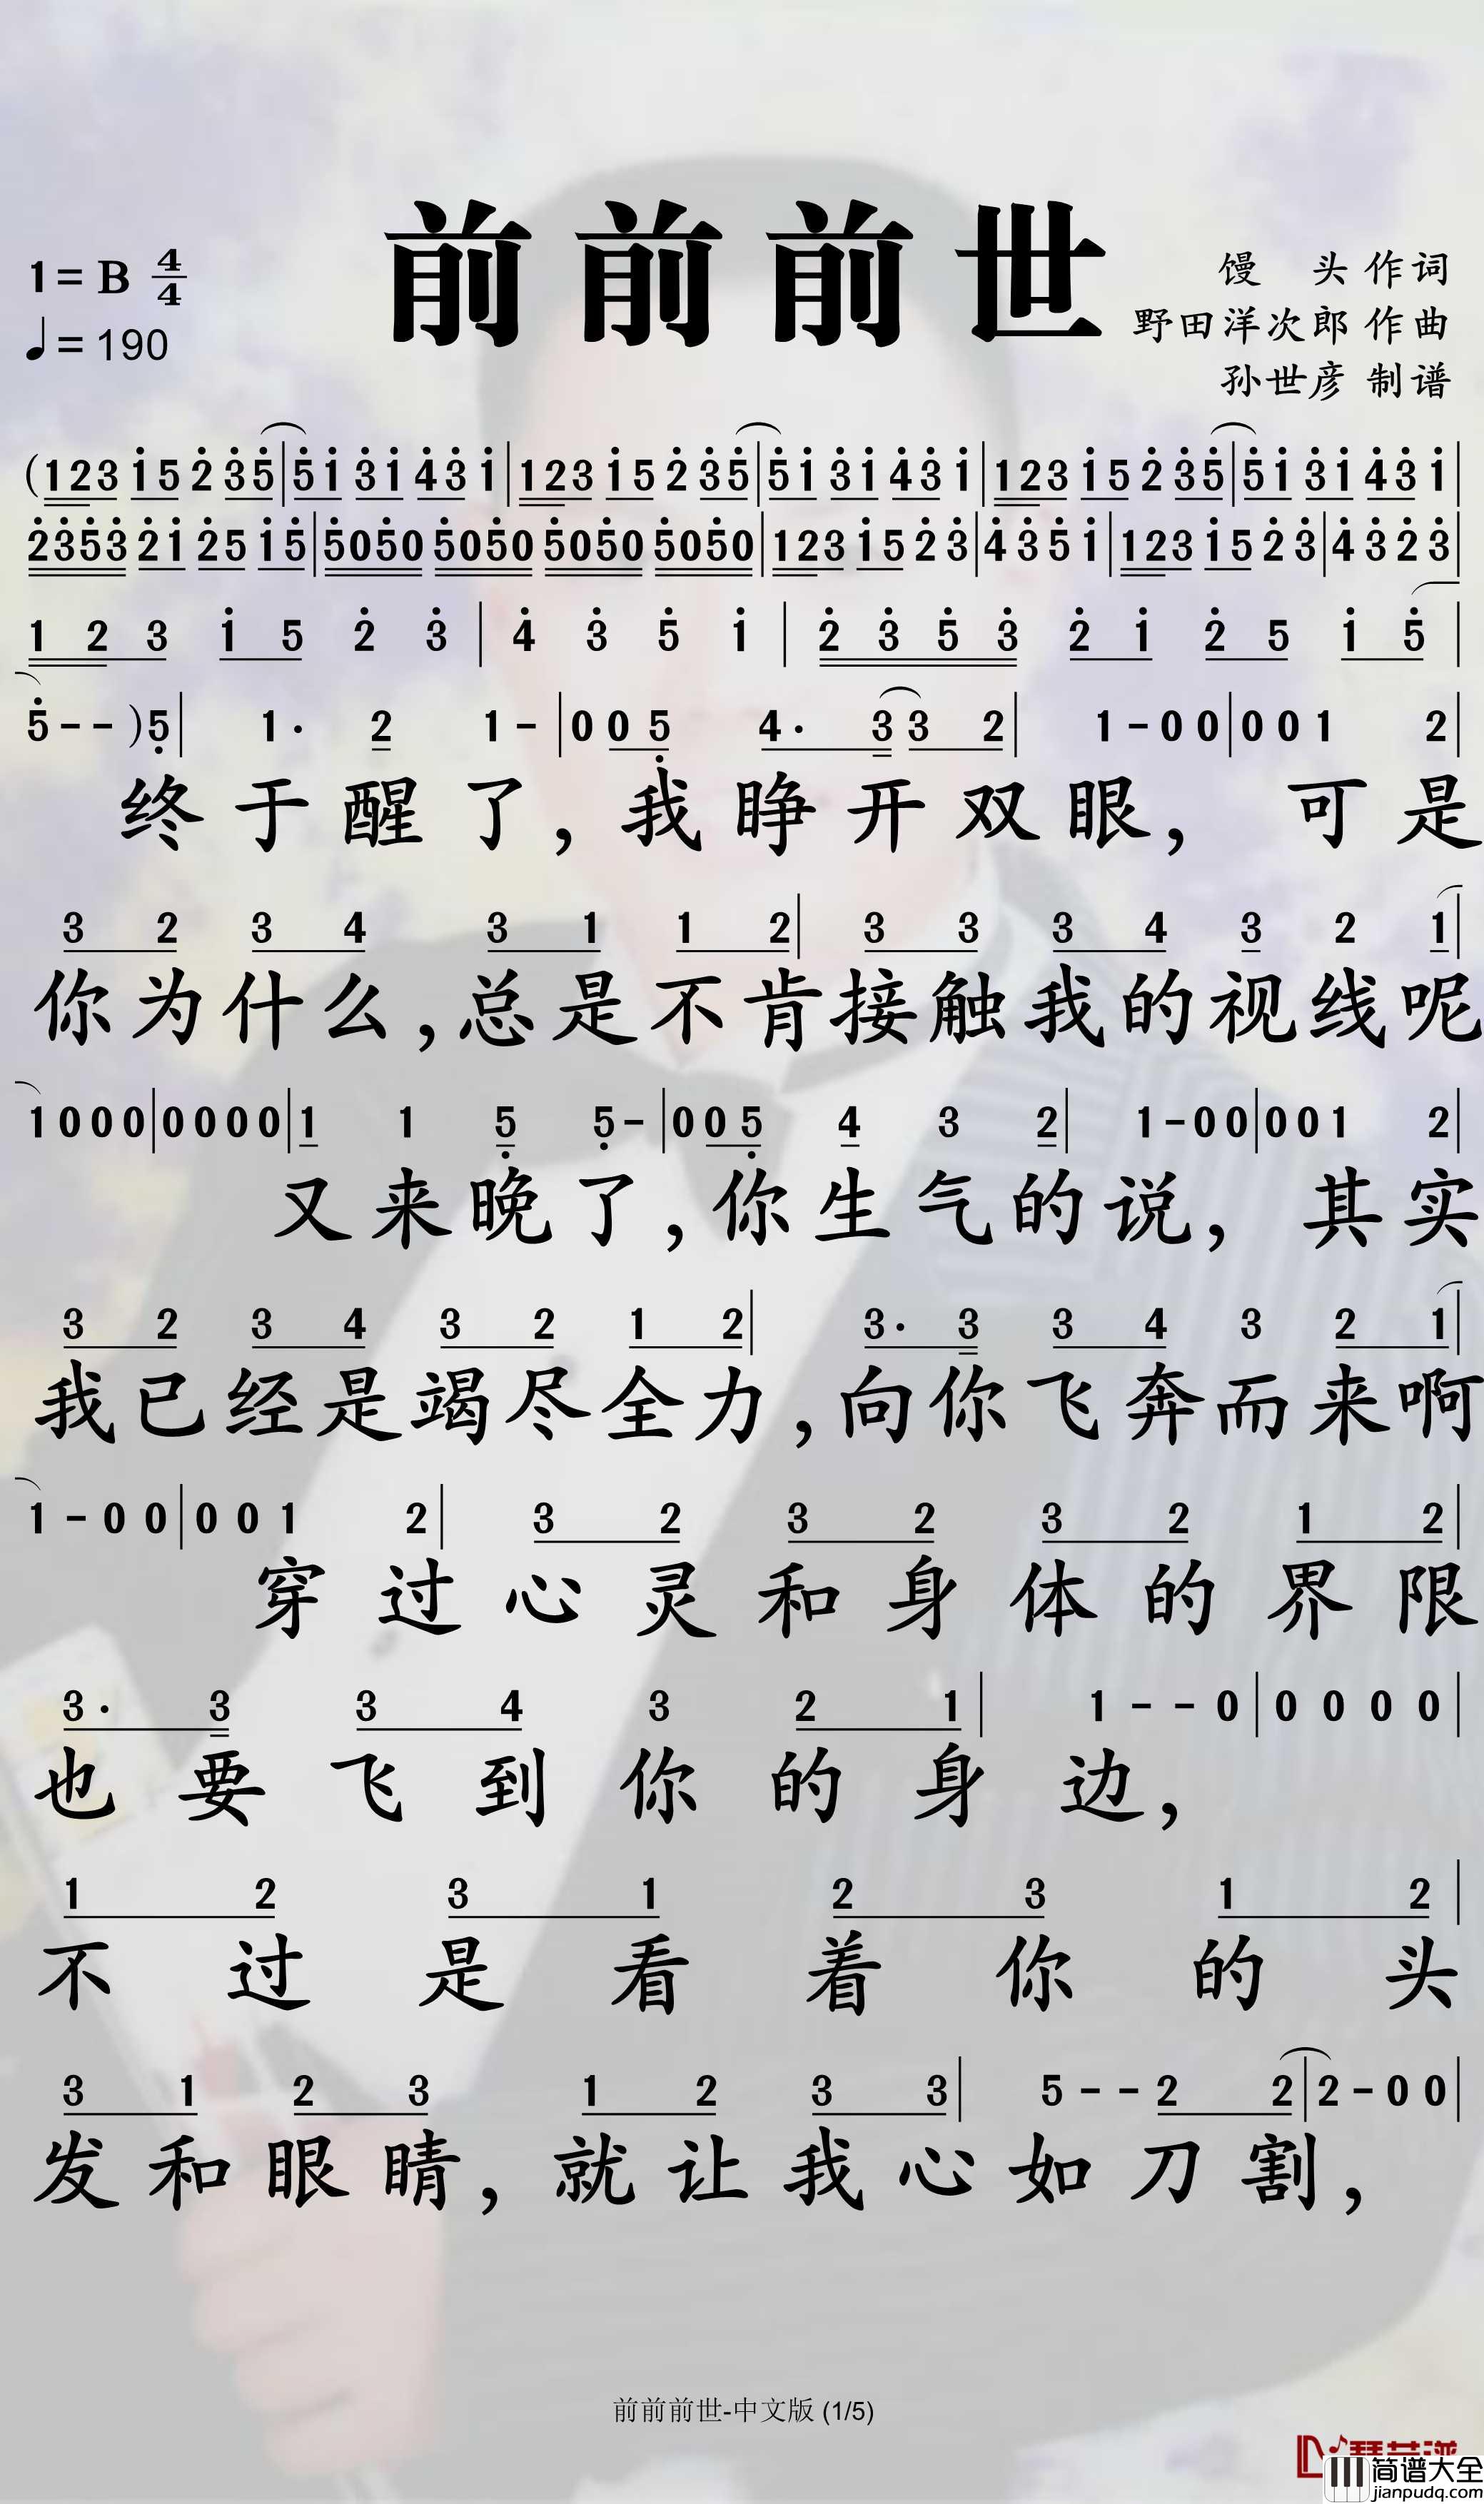 前前前世
1=B 4/4
♩=190
馒 头 作词
野田洋次郎 作曲
孙世彦 制谱
(1 2 3 1 5 2 3 5 | 5 1 3 1 4 3 1 | 1 2 3 1 5 2 3 5 | 5 1 3 1 4 3 1 | 1 2 3 1 5 2 3 5 | 5 1 3 1 4 3 1 |
2 3 5 3 2 1 2 5 1 5 | 5 0 5 0 5 0 5 0 5 0 5 0 5 0 5 0 | 1 2 3 1 5 2 3 | 4 3 5 1 | 1 2 3 1 5 2 3 | 4 3 2 3 |
1 2 3 1 5 2 3 | 4 3 5 1 | 2 3 5 3 2 1 2 5 1 5 |
5 - - ) 5 | 1 · 2 1 - | 0 0 5 4 · 3 3 2 | 1 - 0 0 | 0 0 1 2 |
终于醒了,我睁开双眼,可是
3 2 3 4 3 1 1 2 | 3 3 3 4 3 2 1 |
你为什么,总是不肯接触我的视线呢
1 0 0 0 | 0 0 0 0 | 1 1 5 5 - | 0 0 5 4 3 2 | 1 - 0 0 | 0 0 1 2 |
又来晚了,你生气的说,其实
3 2 3 4 3 2 1 2 | 3 · 3 3 4 3 2 1 |
我已经是竭尽全力,向你飞奔而来啊
1 - 0 0 | 0 0 1 2 | 3 2 3 2 3 2 1 2 |
穿过心灵和身体的界限
3 · 3 3 4 3 2 1 | 1 - - 0 | 0 0 0 0 |
也要飞到你的身边,
1 2 3 1 2 3 1 2 |
不过是看着你的头
3 1 2 3 1 2 3 3 | 5 - - 2 2 | 2 - 0 0 |
发和眼睛,就让我心如刀割,
前前前世-中文版 (1/5)
简谱大全
jianpudq.com